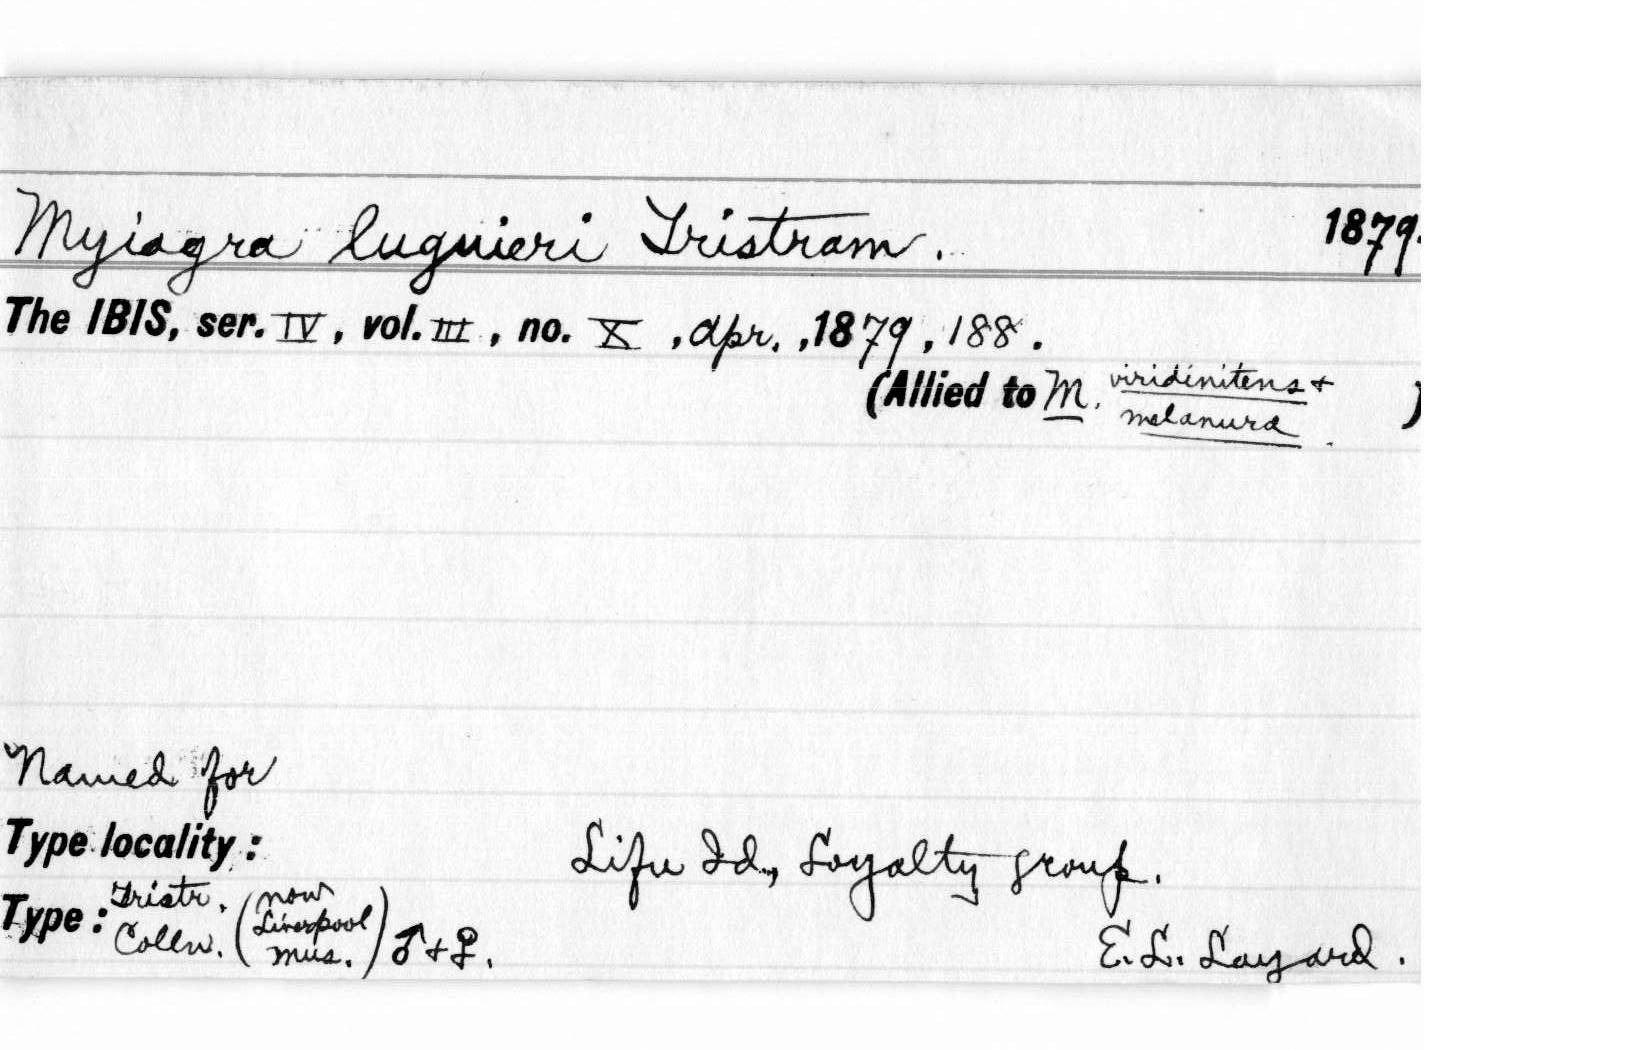 Myiagra luguieri Tristram. 1879.
The IBIS, ser. IV, vol. III, no. X, Apr., 1879, 188.
(Allied to M. viridinitens +
melanura. )
Named for
Type locality: Lifu Id., Loyalty group.
Type: Tristr. Colln. (now Liverpool Mus.) ♂ + ♀. E.L. Layard.